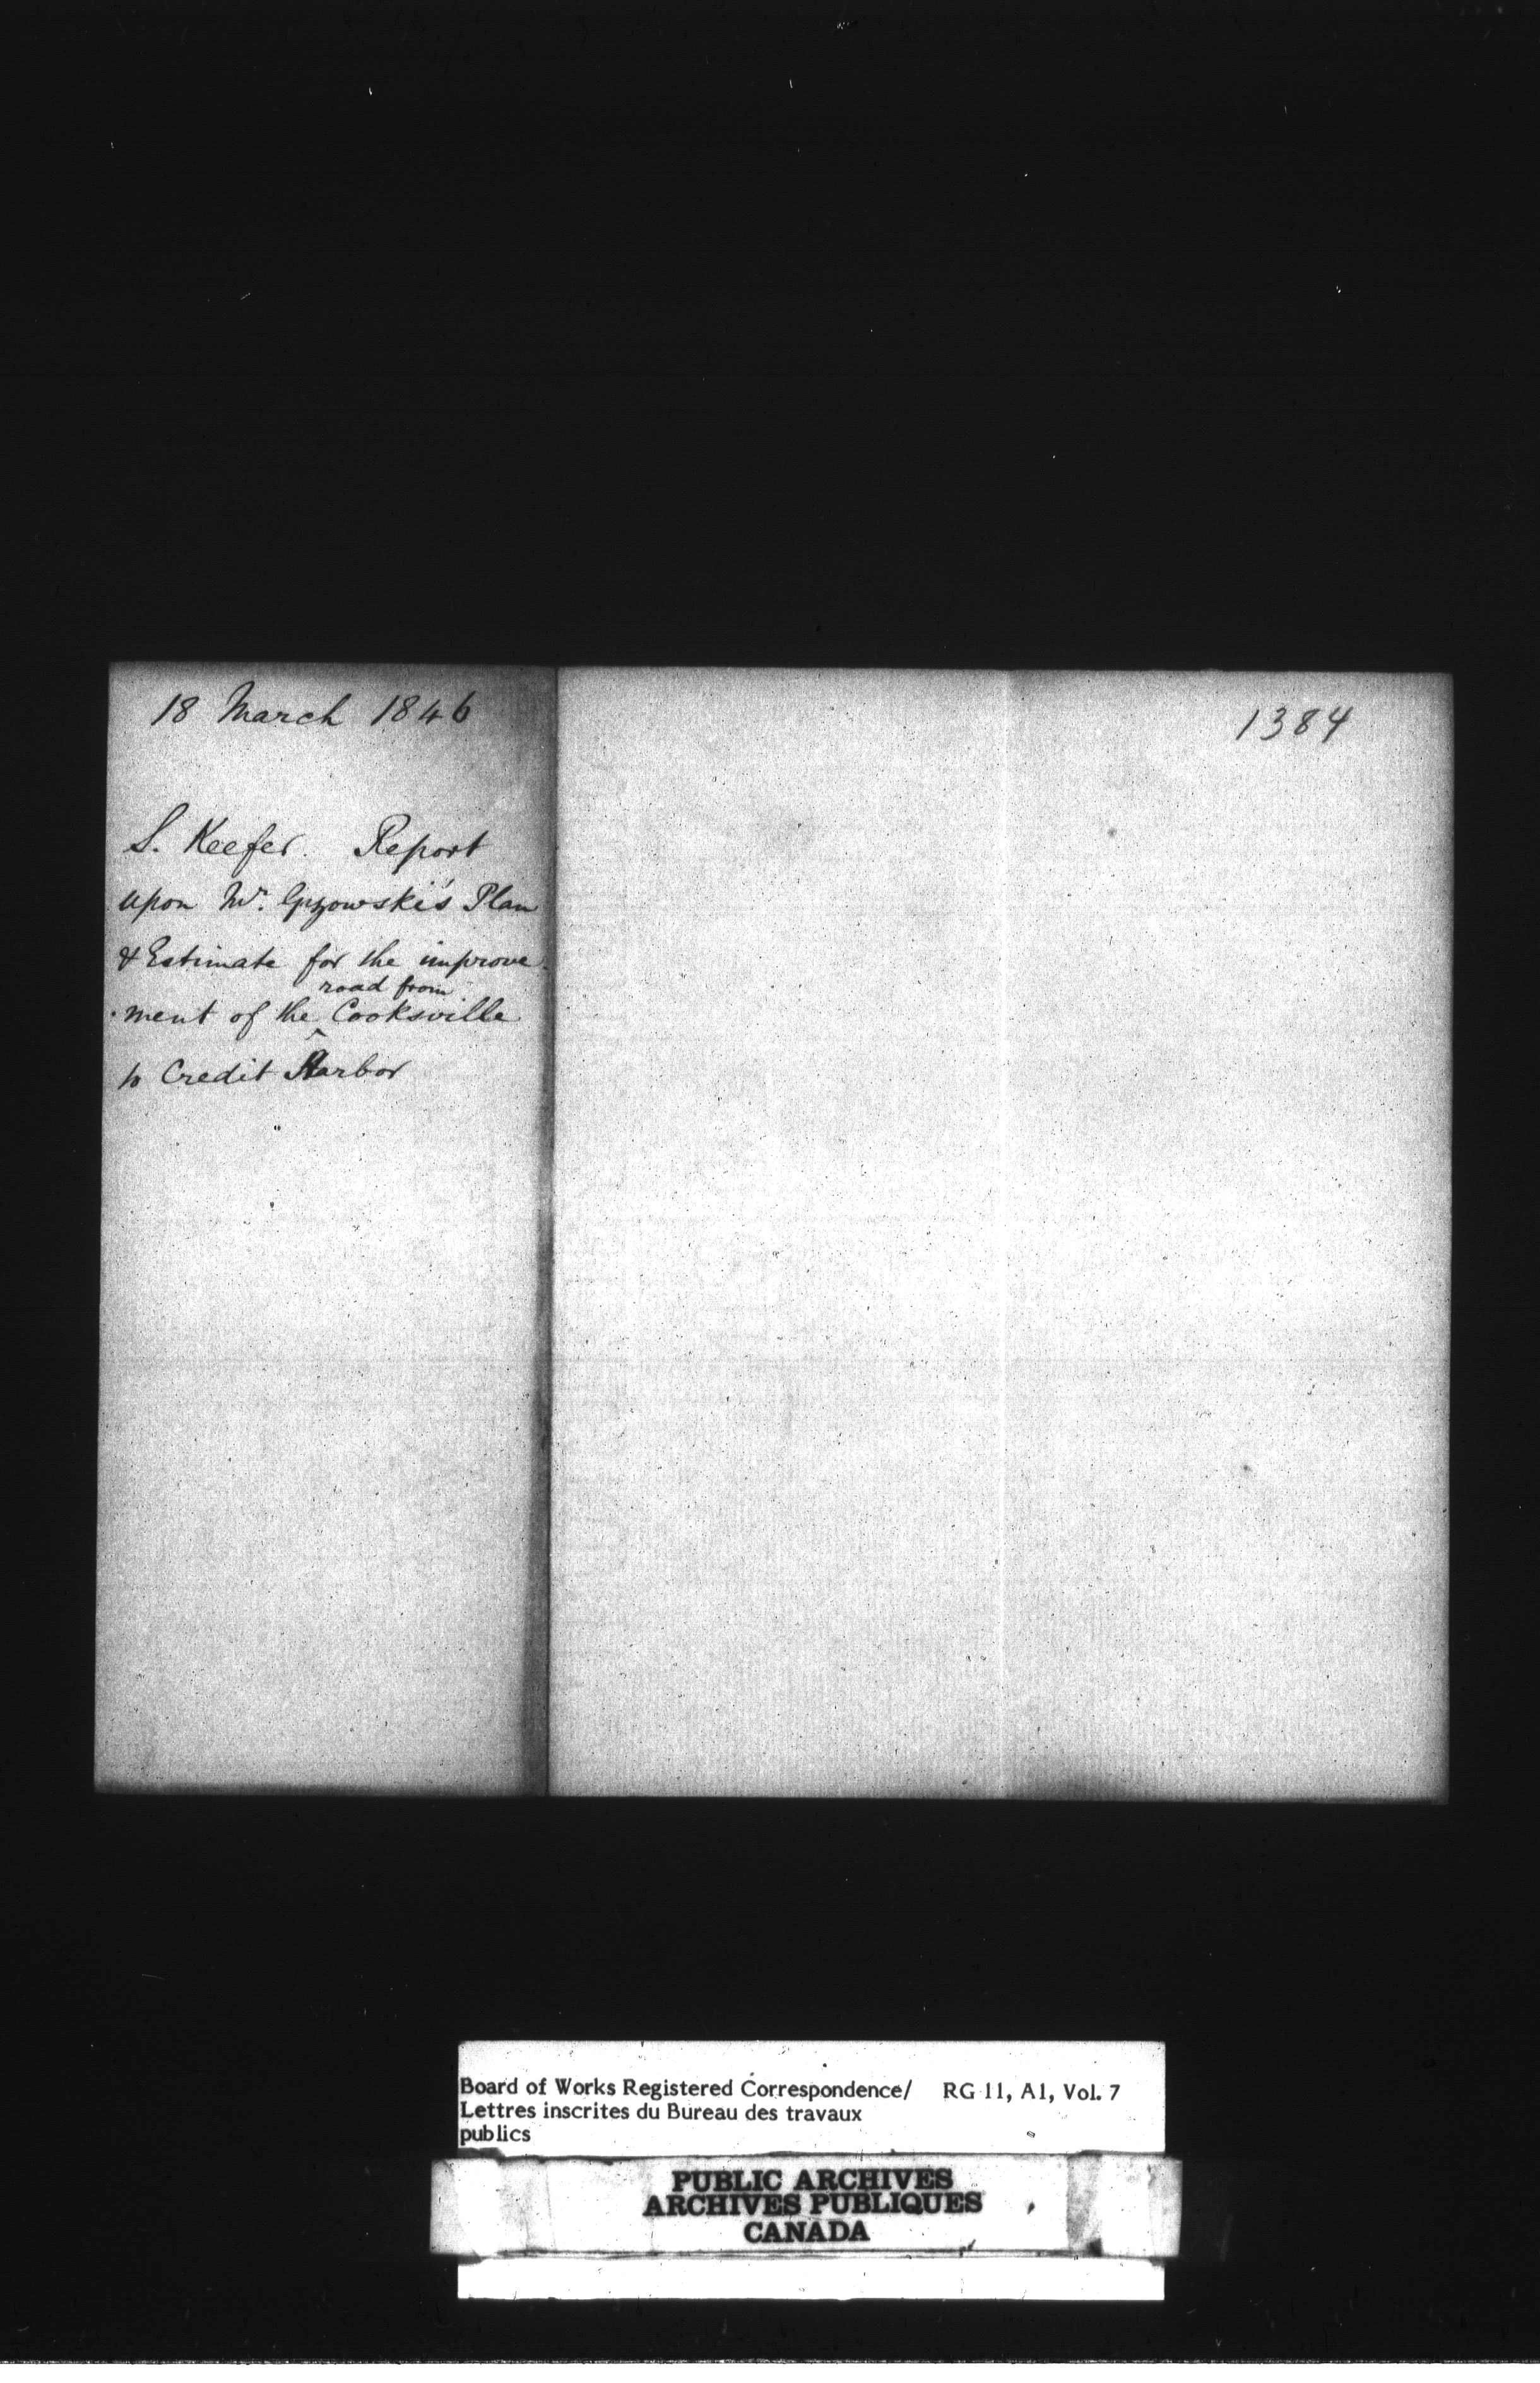 18 March 1846
1384
S. Keefer. Report
upon Mr. Gzowski's Plan
& Estimate for the improve
road from
ment of the ^ Cooksville
to Credit Harbor
Board of Works Registered Correspondence/ RG 11, A1, Vol. 7
Lettres inscrites du Bureau des travaux
publics
PUBLIC ARCHIVES
ARCHIVES PUBLIQUES
CANADA